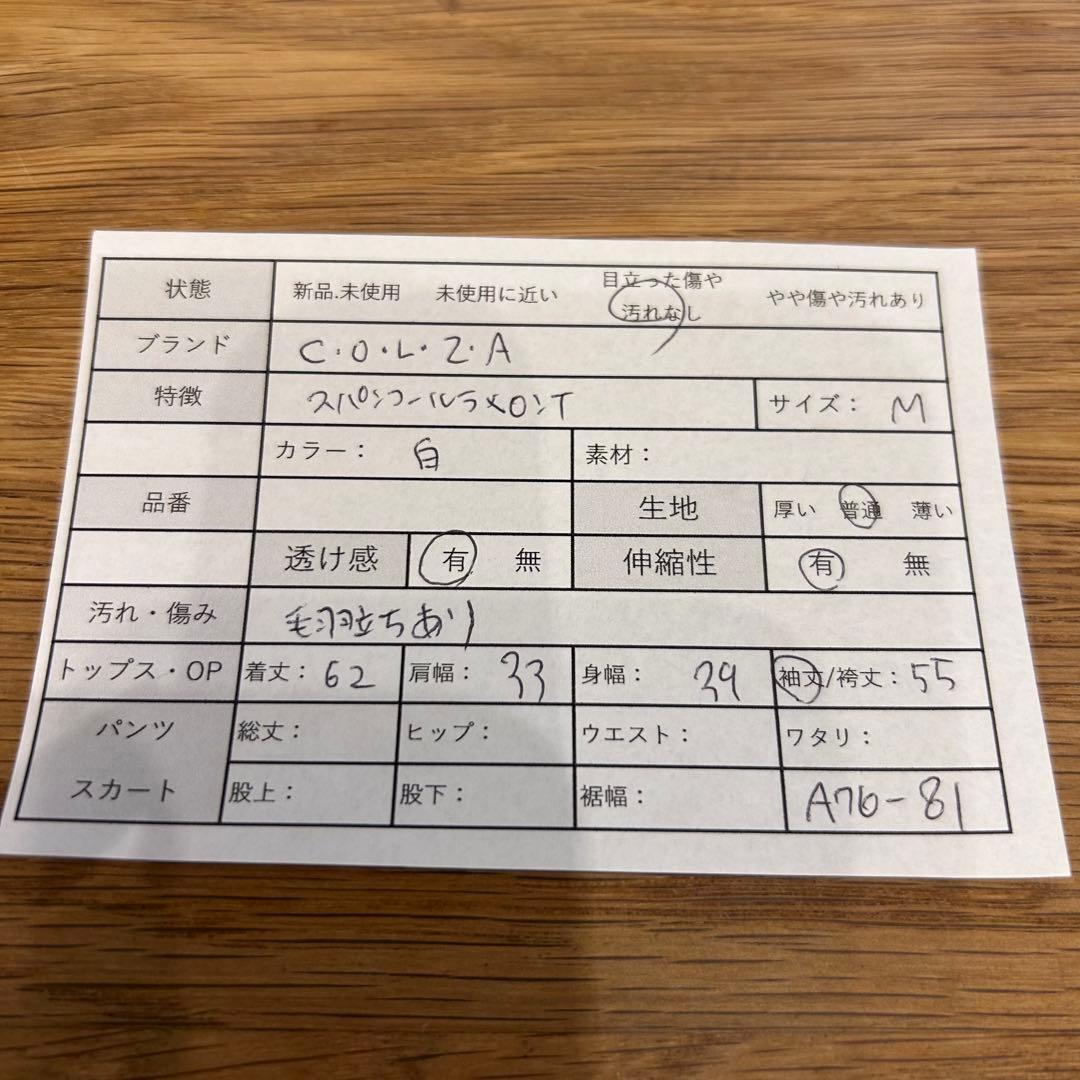 状態 新品.未使用 未使用に近い 目立った傷や汚れなし やや傷や汚れあり
ブランド C・O・L・Z・A
特徴 スパンコールラメロンT サイズ： M
カラー： 白 素材：
品番 生地 厚い 普通 薄い
透け感 有 無 伸縮性 有 無
汚れ・傷み 毛羽立ちあり
トップス・OP 着丈：62 肩幅： 33 身幅： 39 袖丈/袴丈：55
パンツ 総丈： ヒップ： ウエスト： ワタリ：
スカート 股上： 股下： 裾幅： A76-81